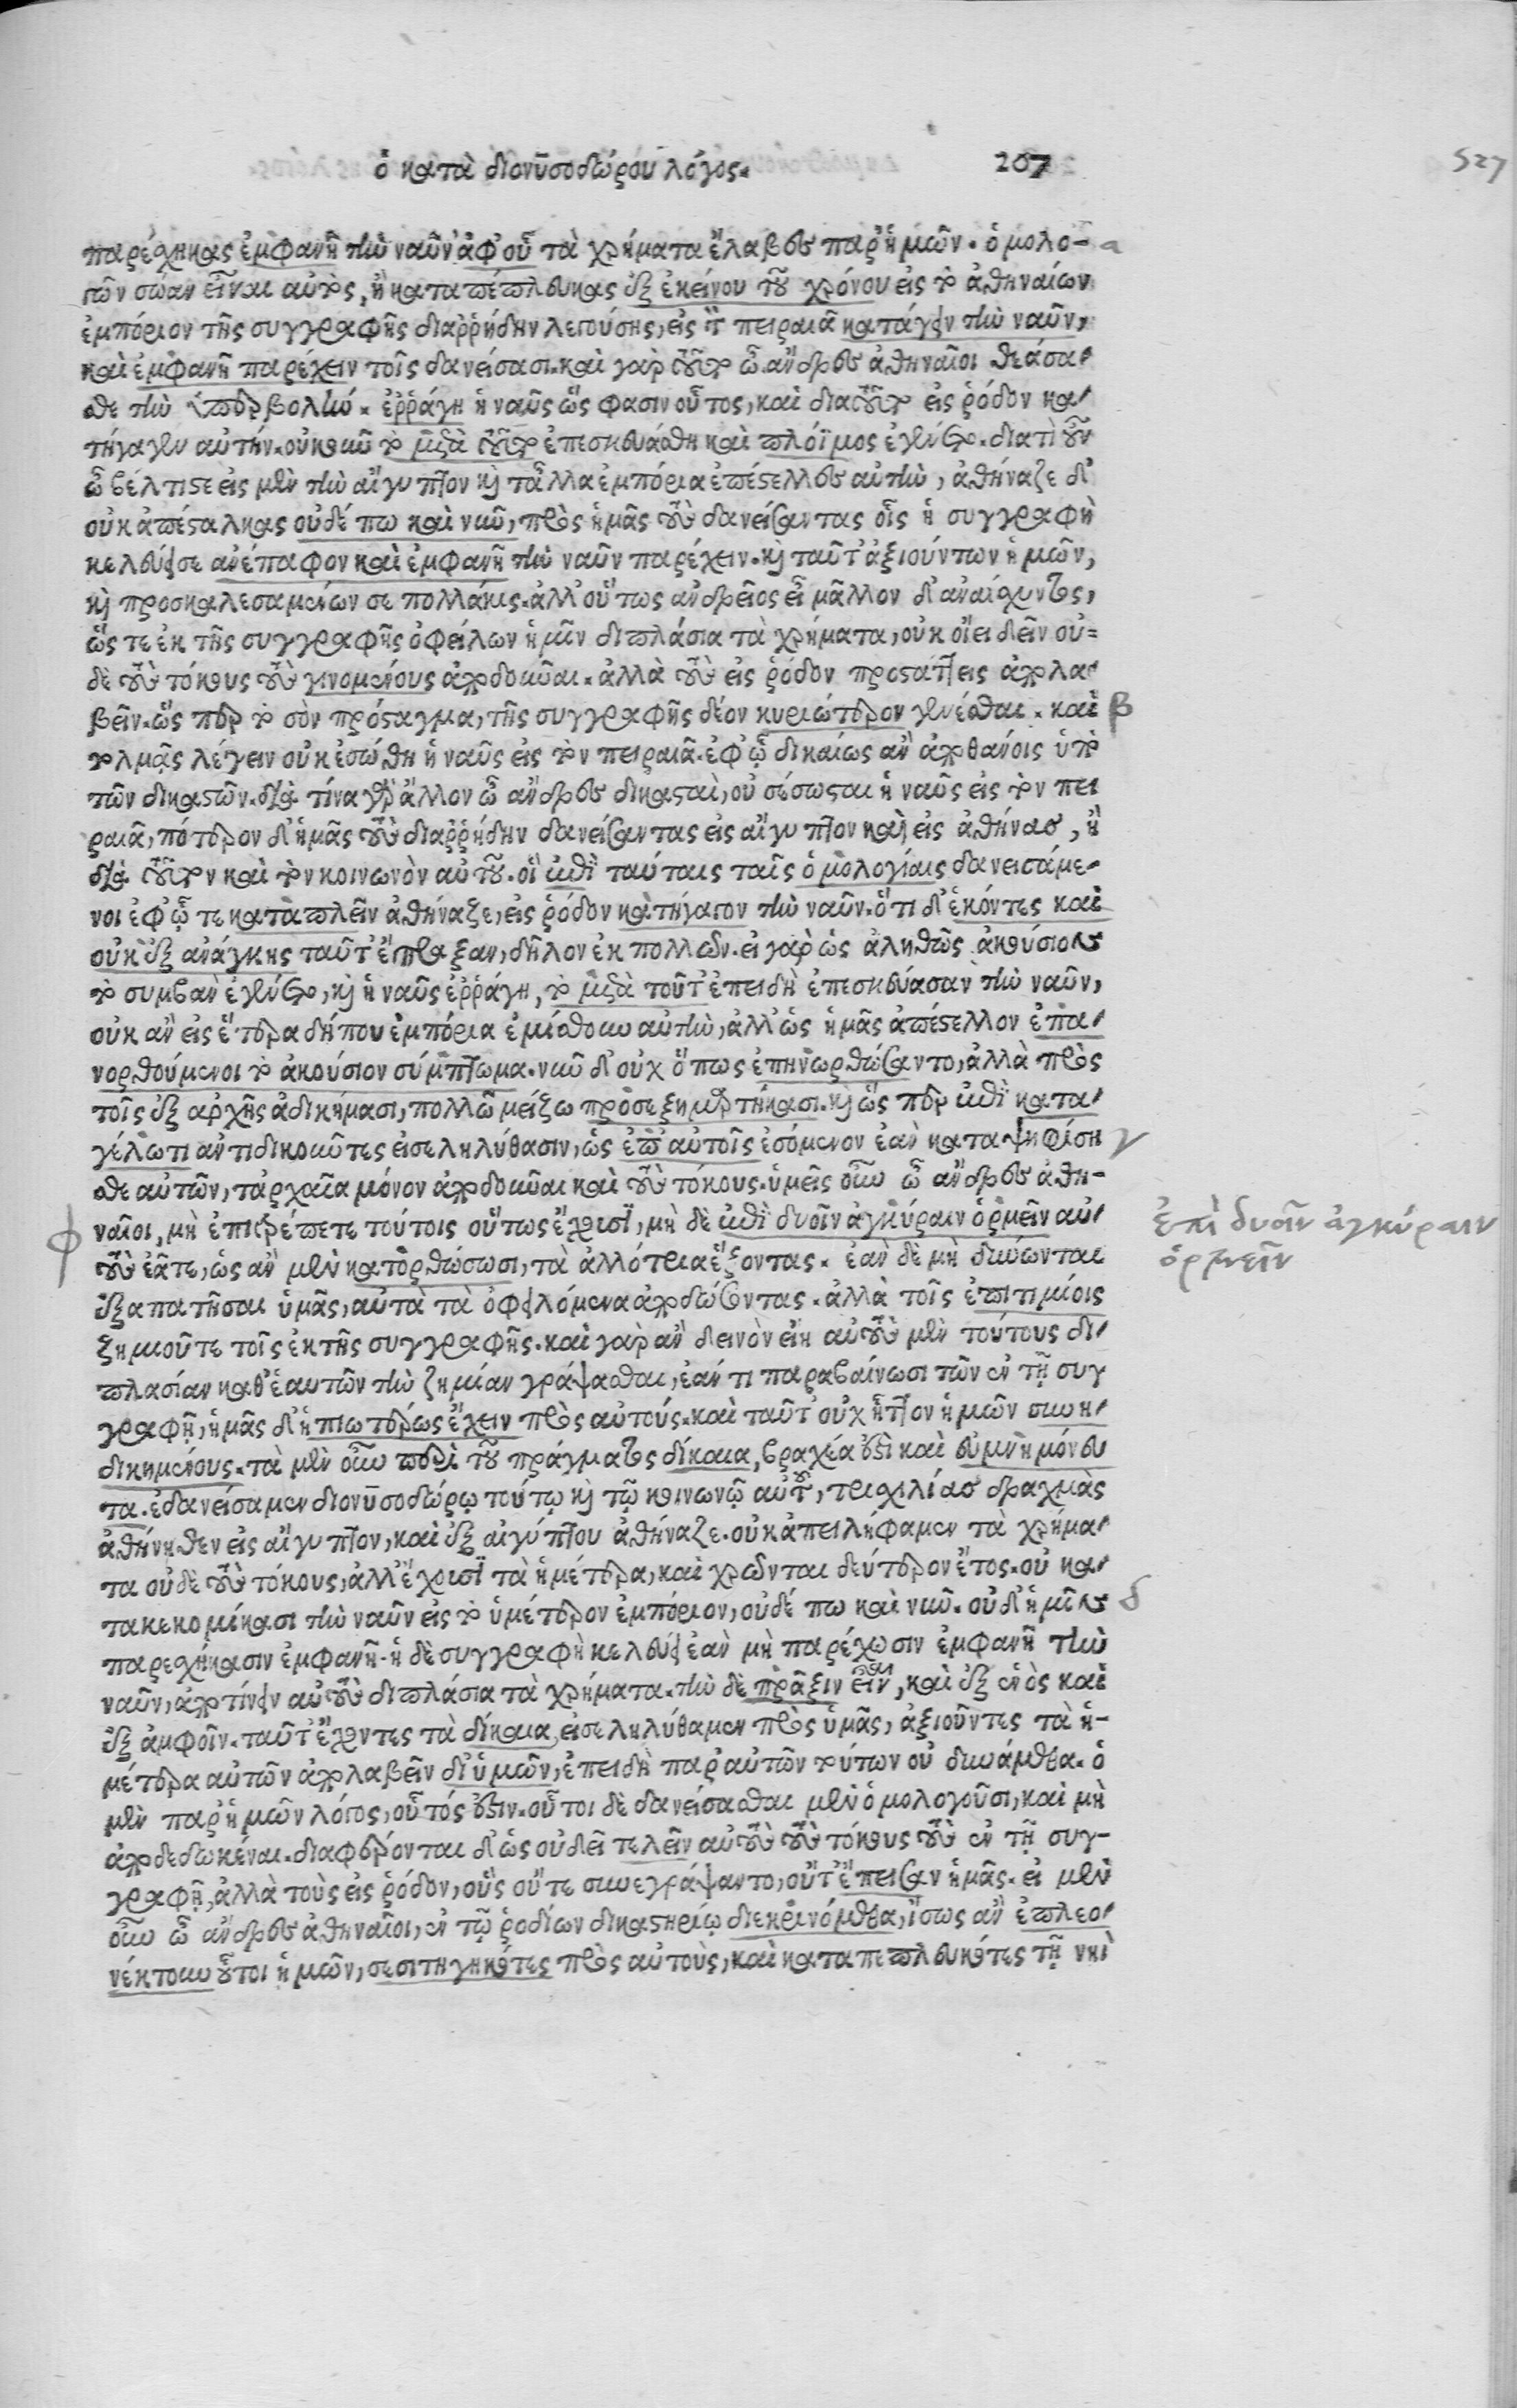 ὁ κατὰ διονυσοδώρου λόγος.
207
527
παρέσχηκας ἐμφανῆ τὴν ναῦν ἀφ' οὗ τὰ χρήματα ἔλαβες παρ' ἡμῶν. ὁμολο-
γῶν σώαν εἶναι αὐτὸς, ἢ καταπέπλευκας ἐξ ἐκείνου τοῦ χρόνου εἰς τὸ ἀθηναίων
ἐμπόριον τῆς συγγραφῆς διαῤῥήδην λεγούσης, εἰς τὸν πειραιᾶ κατάγειν τὴν ναῦν,
καὶ ἐμφανῆ παρέχειν τοῖς δανείσασι. καὶ γὰρ τοῦτο ὦ ἄνδρες ἀθηναῖοι θεάσα-
σθε τὴν ὑπερβολήν. ἐῤῥάγη ἡ ναῦς ὥς φασιν οὗτος, καὶ διατοῦτο εἰς ῥόδον κα-
τήγαγεν αὐτήν. οὐκοῦν τὸ μετὰ τοῦτο ἐπεσκευάσθη καὶ πλόϊμος ἐγένετο. διατὶ οὖν
ὦ βέλτιστε εἰς μὲν τὴν αἴγυπτον καὶ τἄλλα ἐμπόρια ἀπέστελλες αὐτὴν, ἀθήναζε δ'
οὐκ ἀπέσταλκας οὐδέ πω καὶ νῦν, πρὸς ἡμᾶς τοὺς δανείσαντας οἷς ἡ συγγραφὴ
κελεύει σε ἀνέπαφον καὶ ἐμφανῆ τὴν ναῦν παρέχειν. καὶ ταῦτ' ἀξιούντων ἡμῶν,
καὶ προσκαλεσαμένων σε πολλάκις. ἀλλ' οὕτως ἀνδρεῖος εἶ μᾶλλον δ' ἀναίσχυντος,
ὥς τε ἐκ τῆς συγγραφῆς ὀφείλων ἡμῖν διπλάσια τὰ χρήματα, οὐκ οἴει δεῖν οὐ=
δὲ τοὺς τόκους τοὺς γινομένους ἀποδοῦναι. ἀλλὰ τοὺς εἰς ῥόδον προστάττεις ἀπολα-
βεῖν. ὥς περ τὸ σὸν πρόσταγμα, τῆς συγγραφῆς δέον κυριώτερον γενέσθαι. καὶ
τολμᾷς λέγειν οὐκ ἐσώθη ἡ ναῦς εἰς τὸν πειραιᾶ. ἐφ' ᾧ δικαίως ἂν ἀποθάνοις ὑπὸ
τῶν δικαστῶν. διὰ τίνα γὰρ ἄλλον ὦ ἄνδρες δικασταὶ, οὐ σέσωσται ἡ ναῦς εἰς τὸν πει
ραιᾶ, πότερον δ' ἡμᾶς τοὺς διαῤῥήδην δανείσαντας εἰς αἴγυπτον καὶ εἰς ἀθήνας, ἢ
διὰ τοῦτον καὶ τὸν κοινωνὸν αὐτοῦ. οἳ ἐπὶ ταύταις ταῖς ὁμολογίαις δανεισάμε-
νοι ἐφ' ᾧ τε καταπλεῖν ἀθήναζε, εἰς ῥόδον κατήγαγον τὴν ναῦν. ὅτι δ' ἑκόντες καὶ
οὐκ ἐξ ἀνάγκης ταῦτ' ἔπραξαν, δῆλον ἐκ πολλῶν. εἰ γὰρ ὡς ἀληθῶς ἀκούσιον
τὸ συμβὰν ἐγένετο, καὶ ἡ ναῦς ἐῤῥάγη, τὸ μετὰ τοῦτ' ἐπειδὴ ἐπεσκεύασαν τὴν ναῦν,
οὐκ ἂν εἰς ἕτερα δήπου ἐμπόρια ἐμίσθουν αὐτὴν, ἀλλ' ὡς ἡμᾶς ἀπέστελλον ἐπα-
νορθούμενοι τὸ ἀκούσιον σύμπτωμα. νῦν δ' οὐχ ὅπως ἐπηνωρθώσαντο, ἀλλὰ πρὸς
τοῖς ἐξ ἀρχῆς ἀδικήμασι, πολλῷ μείζω προσεξημαρτήκασι. καὶ ὥς περ ἐπὶ κατα-
γέλωτι ἀντιδικοῦντες εἰσεληλύθασιν, ὡς ἐπ' αὐτοῖς ἐσόμενον ἐὰν καταψηφίση
σθε αὐτῶν, τἀρχαῖα μόνον ἀποδοῦναι καὶ τοὺς τόκους. ὑμεῖς οὖν ὦ ἄνδρες ἀθη-
ναῖοι, μὴ ἐπιτρέπετε τούτοις οὕτως ἔχουσι, μὴ δὲ ἐπὶ δυοῖν ἀγκύραιν ὁρμεῖν αὐ-
τοὺς ἐᾶτε, ὡς ἂν μὲν κατορθώσωσι, τὰ ἀλλότρια ἕξοντας. ἐὰν δὲ μὴ δύνωνται
ἐξαπατῆσαι ὑμᾶς, αὐτὰ τὰ ὀφειλόμενα ἀποδώσοντας. ἀλλὰ τοῖς ἐπιτιμίοις
ζημιοῦτε τοῖς ἐκ τῆς συγγραφῆς. καὶ γὰρ ἂν δεινὸν εἴη αὐτοὺς μὲν τούτους δι-
πλασίαν καθ' ἑαυτῶν τὴν ζημίαν γράψασθαι, ἐάν τι παραβαίνωσι τῶν ἐν τῇ συγ
γραφῇ, ἡμᾶς δ' ἠπιωτέρως ἔχειν πρὸς αὐτούς. καὶ ταῦτ' οὐχ ἧττον ἡμῶν συνη-
δικημένους. τὰ μὲν οὖν περὶ τοῦ πράγματος δίκαια, βραχέα ἐστὶ καὶ εὐμνημόνευ
τα. ἐδανείσαμεν διονυσοδώρῳ τούτῳ καὶ τῷ κοινωνῷ αὐτοῦ, τρισχιλίας δραχμὰς
ἀθήνηθεν εἰς αἴγυπτον, καὶ ἐξ αἰγύπτου ἀθήναζε. οὐκ ἀπειλήφαμεν τὰ χρήμα-
τα οὐδὲ τοὺς τόκους, ἀλλ' ἔχουσι τὰ ἡμέτερα, καὶ χρῶνται δεύτερον ἔτος. οὐ κα-
τακεκομίκασι τὴν ναῦν εἰς τὸ ὑμέτερον ἐμπόριον, οὐδέ πω καὶ νῦν. οὐδ' ἡμῖν
παρεσχήκασιν ἐμφανῆ. ἡ δὲ συγγραφὴ κελεύει ἐὰν μὴ παρέχωσιν ἐμφανῆ τὴν
ναῦν, ἀποτίνειν αὐτοὺς διπλάσια τὰ χρήματα. τὴν δὲ πρᾶξιν εἶναι, καὶ ἐξ ἑνὸς καὶ
ἐξ ἀμφοῖν. ταῦτ' ἔχοντες τὰ δίκαια, εἰσεληλύθαμεν πρὸς ὑμᾶς, ἀξιοῦντες τὰ ἡ-
μέτερα αὐτῶν ἀπολαβεῖν δι' ὑμῶν, ἐπειδὴ παρ' αὐτῶν τούτων οὐ δυνάμεθα. ὁ
μὲν παρ' ἡμῶν λόγος, οὗτός ἐστιν. οὗτοι δὲ δανείσασθαι μὲν ὁμολογοῦσι, καὶ μὴ
ἀποδεδωκέναι. διαφέρονται δ' ὡς οὐ δεῖ τελεῖν αὐτοὺς τοὺς τόκους τοὺς ἐν τῇ συγ-
γραφῇ, ἀλλὰ τοὺς εἰς ῥόδον, οὓς οὔτε συνεγράψαντο, οὔτ' ἔπεισαν ἡμᾶς. εἰ μὲν
οὖν ὦ ἄνδρες ἀθηναῖοι, ἐν τῷ ῥοδίων δικαστηρίῳ διεκρινόμεθα, ἴσως ἂν ἐπλεο-
νέκτουν οὗτοι ἡμῶν, σεσιτηγηκότες πρὸς αὐτοὺς, καὶ καταπεπλευκότες τῇ νηὶ
a
β
γ
δ
φ
ἐπὶ δυοῖν ἀγκύραιν
ὁρμεῖν